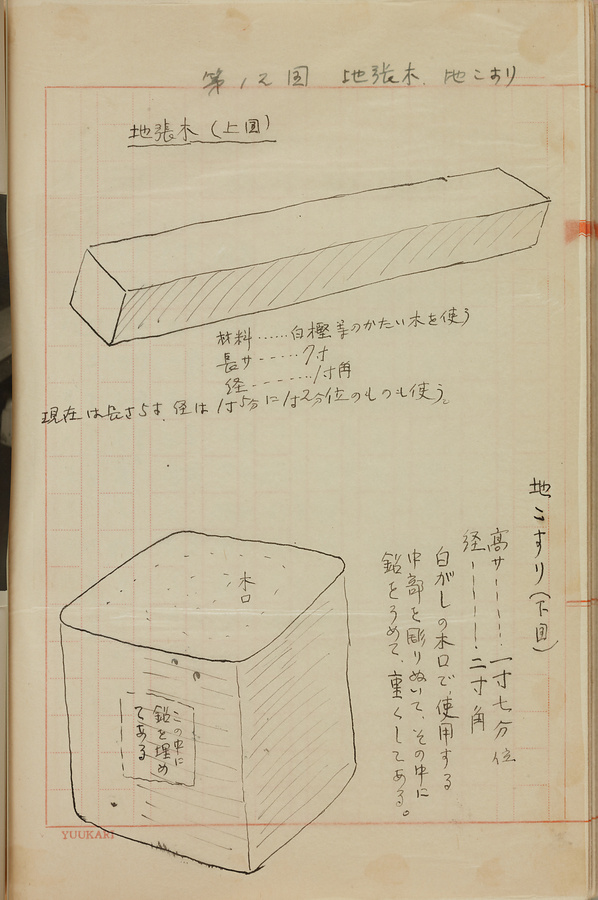 第12図 地張木、地こすり
地張木（上図）
材料……白樫等のかたい木を使う
長サ-----7寸
径-------1寸角
現在は長さ5寸、径は1寸5分に1寸2分位のものも使う。
地こすり（下図）
高サ-----一寸七分位
径-----二寸角
白がしの木口で、使用する
中部を彫りぬいて、その中に
鉛をうめて、重くしてある。
木口
この中に
鉛を埋め
てある
YUUKARI